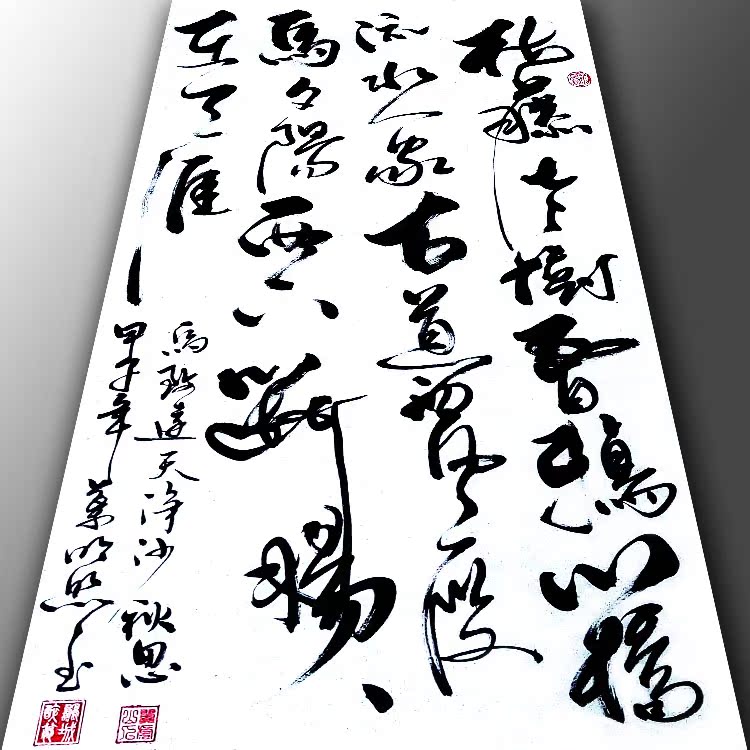 枯藤老樹昏鴉小橋
流水人家古道西風瘦
馬夕陽西下斷腸人
在天涯
馬致遠天淨沙秋思
甲子年